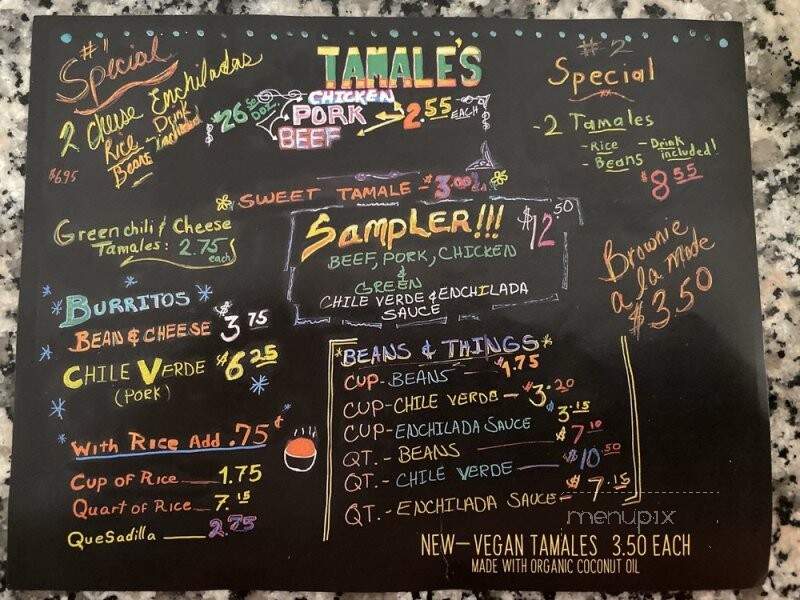 #1
Special
2 Cheese Enchiladas
Rice - Drink included
Beans
$6.95
TAMALE'S
CHICKEN
PORK
BEEF
$26.50 DOZ.
2.55 EACH
#2
Special
-2 Tamales
- Rice - Drink included!
- Beans
$8.55
SWEET TAMALE - $3.00
Green chili & Cheese
Tamales: 2.75 each
SAMPLER!!! $12.50
BEEF, PORK, CHICKEN
&
GREEN
CHILE VERDE & ENCHILADA
SAUCE
Brownie
a la mode
$3.50
BURRITOS
BEAN & CHEESE $3.75
CHILE VERDE $6.25
(PORK)
With Rice Add .75¢
Cup of Rice 1.75
Quart of Rice 7.15
QueSadilla 2.75
BEANS & THINGS
CUP-BEANS $1.75
CUP-CHILE VERDE - $3.20
CUP-ENCHILADA SAUCE $3.15
QT.- BEANS $7.10
QT.- CHILE VERDE $10.50
QT.- ENCHILADA SAUCE - $7.15
menupix
NEW-VEGAN TAMALES 3.50 EACH
MADE WITH ORGANIC COCONUT OIL